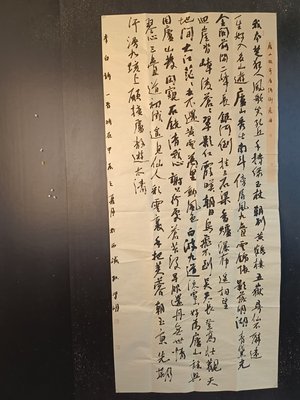 廬山謠寄盧侍御虛舟
我本楚狂人鳳歌笑孔丘手持綠玉杖朝別黃鶴樓五嶽尋仙不辭遠
一生好入名山遊廬山秀出南斗傍屏風九疊雲錦張影落明湖青黛光
金闕前開二峰長銀河倒挂三石梁香爐瀑布遙相望
迴崖沓嶂凌蒼蒼翠影紅霞映朝日鳥飛不到吳天長登高壯觀天
地間大江茫茫去不還黃雲萬里動風色白波九道流雪山好為廬山謠興
因廬山發閑窺石鏡清我心謝公行處蒼苔沒早服還丹無世情
琴心三疊道初成遙見仙人彩雲裏手把芙蓉朝玉京先期
汗漫九垓上願接盧敖遊太清
李白詩一首時在甲辰之夏月